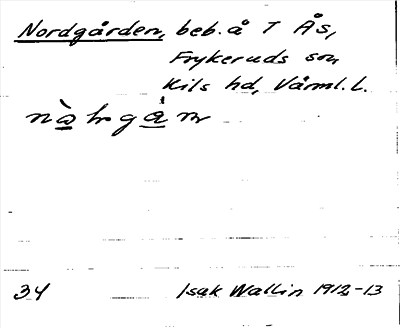 Nordgården, beb. å T Ås,
Frykeruds sn
Kils hd, Värml. l.
34 Isak Wallin 1912-13